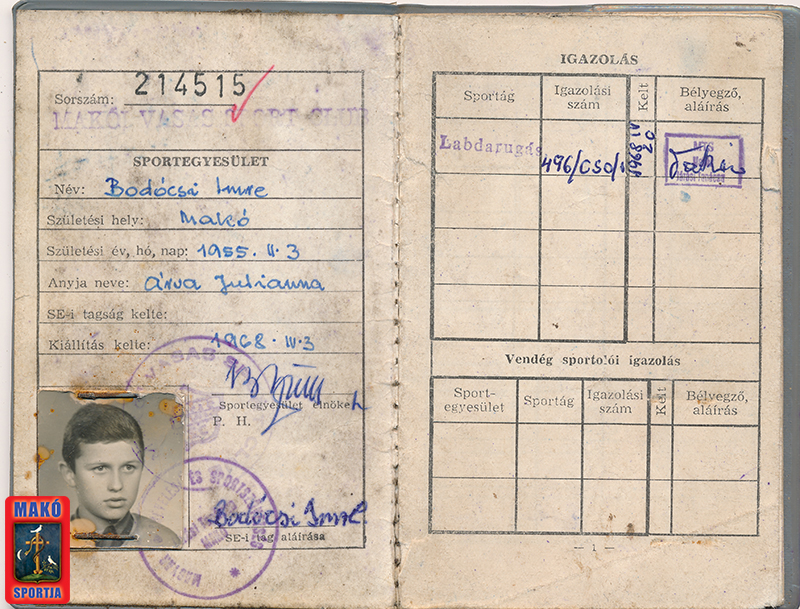 Sorszám: 214515
MAKÓI VASAS SPORT CLUB
SPORTEGYESÜLET
Név: Bodócsi Imre
Születési hely: Makó
Születési év, hó, nap: 1955. II. 3
Anyja neve: Árva Julianna
SE-i tagság kelte:
Kiállítás kelte: 1968. IV. 3
Sportegyesület elnöke
P. H.
Bodócsi Imre
SE-i tag aláírása
MAKÓ
SPORTJA
IGAZOLÁS
Sportág
Igazolási szám
Kelt
Bélyegző, aláírás
Labdarugás
496/CSO/1
1968 IV 20
MTS
Vendég sportolói igazolás
Sport-egyesület
Sportág
Igazolási szám
Kelt
Bélyegző, aláírás
— 1 —